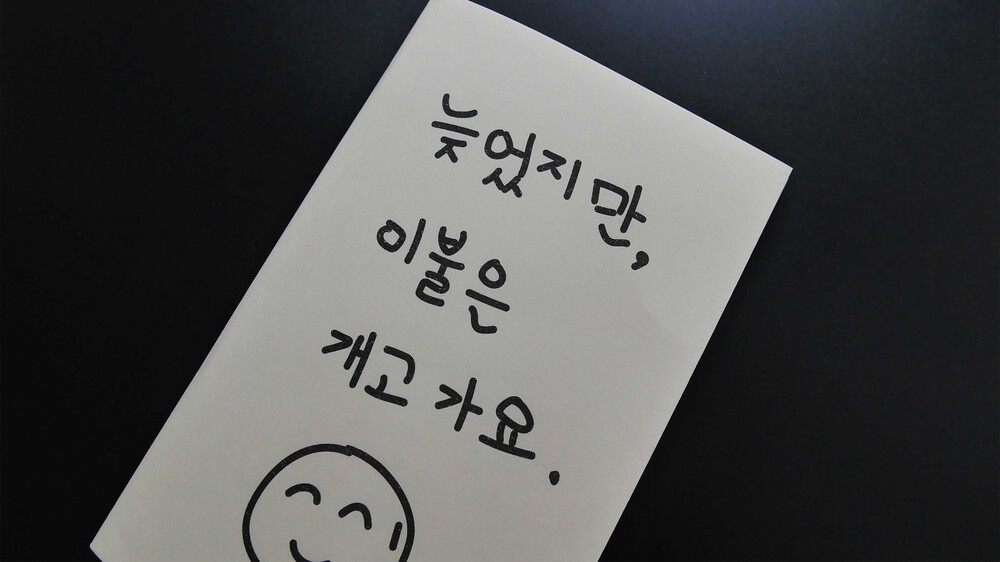 늦었지만,
이불은
개고 가요.